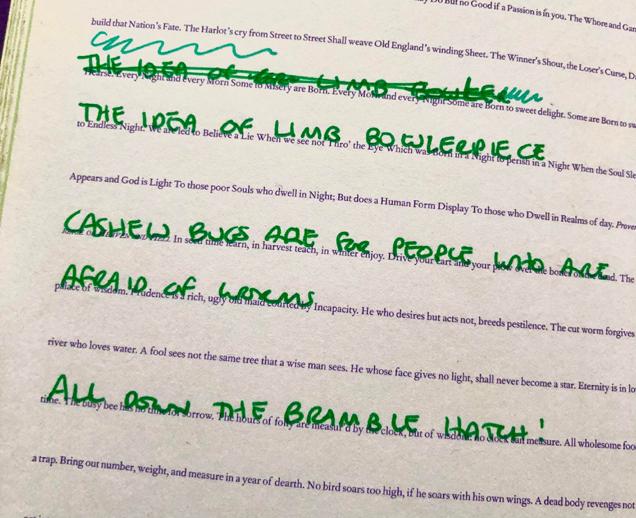 Do But no Good if a Passion is in you. The Whore and Gam
build that Nation's Fate. The Harlot's cry from Street to Street Shall weave Old England's winding Sheet. The Winner's Shout, the Loser's Curse, D
THE IDEA OF LIMB BOWLER
Hearse. Every Night and every Morn Some to Misery are Born. Every Morn and every Night Some are Born to sweet delight. Some are Born to sw
THE IDEA OF LIMB BOWLERPIECE
to Endless Night. We are led to Believe a Lie When we see not Thro' the Eye Which was Born in a Night to perish in a Night When the Soul Sle
Appears and God is Light To those poor Souls who dwell in Night; But does a Human Form Display To those who Dwell in Realms of day. Prover
CASHEW BUGS ARE FOR PEOPLE WHO ARE
In seed time learn, in harvest teach, in winter enjoy. Drive your cart and your plow over the bones of the dead. The
AFRAID OF WORMS
palace of wisdom. Prudence is a rich, ugly old maid courted by Incapacity. He who desires but acts not, breeds pestilence. The cut worm forgives
river who loves water. A fool sees not the same tree that a wise man sees. He whose face gives no light, shall never become a star. Eternity is in lo
ALL DOWN THE BRAMBLE HATCH!
time. The busy bee has no time for sorrow. The hours of folly are measur'd by the clock, but of wisdom: no clock can measure. All wholesome foo
a trap. Bring out number, weight, and measure in a year of dearth. No bird soars too high, if he soars with his own wings. A dead body revenges not